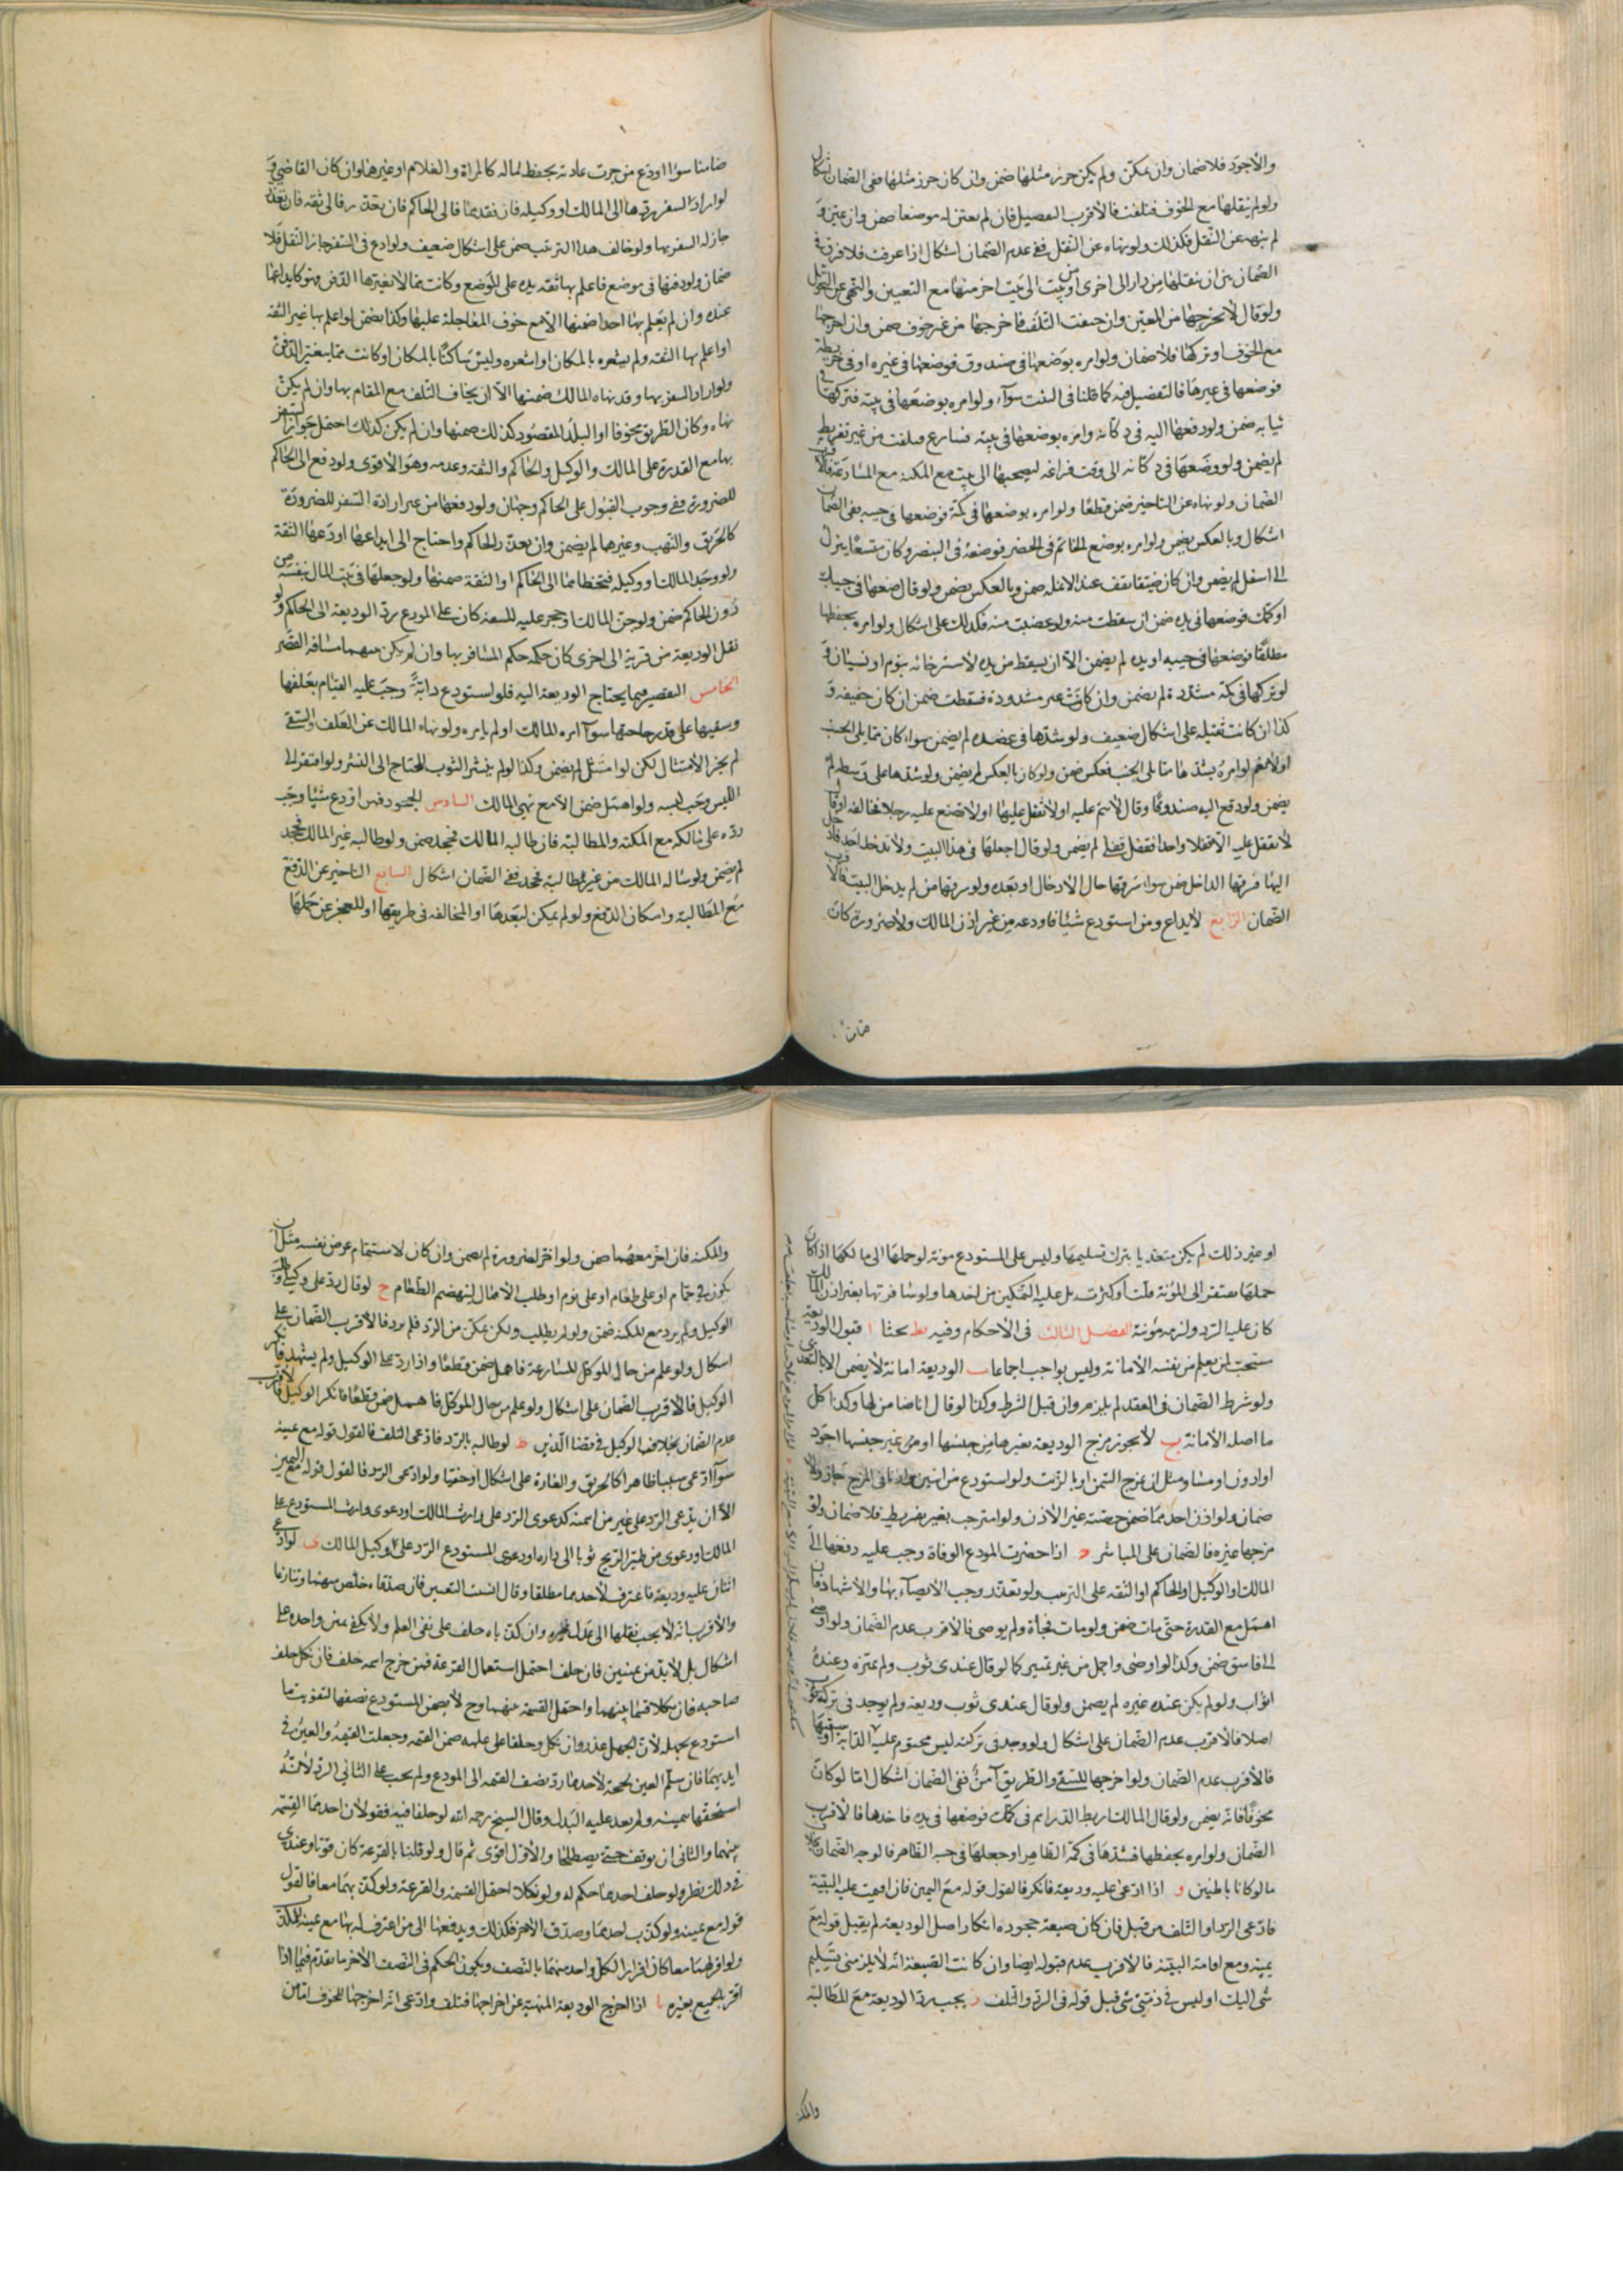 والاجود فلا ضمان وان تمكن ولم يكن حرز مثلها ضمن وان كان حرز مثلها ففي الضمان اشكال
ولو لم ينقلها مع الخوف فتلفت فالاقرب التفصيل فان لم يعين له موضعا ضمن وان عين و
لم ينهه عن النقل فكذلك ولو نهاه عن النقل ففي عدم الضمان اشكال اذا عرفت فلا فرق في
الضمان بين ان ينقلها من دار الى اخرى او من بيت الى بيت اخر منها مع التعيين والنهي عن النقل
ولو قال لا تخرجها من المعين وان خيفت التلف فاخرجها من غير خوف ضمن وان اخرجها
مع الخوف او تركها فلا ضمان ولو امره بوضعها في صندوق فوضعها في غيره او في خريطة
فوضعها في غيرها فالتفصيل فيه كما قلنا في البيت سواء ولو امره بوضعها في بيته فتركها في
ثيابه ضمن ولو دفعها اليه في دكانه وامره بوضعها في بيته فسارع وتلفت من غير تفريط
لم يضمن ولو وضعها في دكانه الى وقت فراغه ليصحبها الى بيته مع المكنة مع المسارعة فالاقرب
الضمان ولو نهاه عن التاخير ضمن قطعا ولو امره بوضعها في كمه فوضعها في جيبه ففي الضمان
اشكال وبالعكس يضمن ولو امره بوضع الخاتم في الخنصر فوضعه في البنصر وكان متسعا ينزل
الى اسفل لم يضمن وان كان ضيقا يقف عند الانملة ضمن وبالعكس يضمن ولو قال ضعها في جيبك
او كمك فوضعها في يده ضمن ان سقطت منه ولو غصبت منه فكذلك على اشكال ولو امره بحفظها
مطلقا فوضعها في جيبه او يده لم يضمن الا ان يسقط من يده لاسترخائه بنوم او نسيان و
لو تركها في كمه مشدودة لم يضمن وان كانت غير مشدودة فسقطت ضمن ان كان خفيفة و
كذا ان كانت ثقيلة على اشكال ضعيف ولو شدها في عضده لم يضمن سواء كان مما يلي الجنب
او لا نعم لو امره بشدها مما يلي الجنب فعكس ضمن ولو كان بالعكس لم يضمن ولو شدها على وسطه لم
يضمن ولو دفع اليه صندوقا وقال لا تنم عليه او لا تقفل عليها او لا تضع عليه رجلا فخالفه او قال
لا تقفل عليه الا قفلا واحدا فقفل قفلين لم يضمن ولو قال اجعلها في هذا البيت ولا تدخل احدا فادخل
اليها فسرقها الداخل ضمن سواء سرقها حال الادخال او بعده ولو سرقها من لم يدخل البيت فالاقرب
الضمان الرابع الايداع ومن استودع شيئا فاودعه من غير اذن المالك ولا ضرورة كان
ضامنا
ضامنا سواء اودع من جرت عادته بحفظ لماله كالمراة والغلام او غيرهما وان كان القاضي و
لو اراد السفر ردها الى المالك او وكيله فان فقدهما فالى الحاكم فان تعذر فالى ثقة فان تعذر
جاز له السفر بها ولو خالف هذا الترتيب ضمن على اشكال ضعيف ولو اودع في السفر جاز النقل فلا
ضمان ولو دفنها في موضع فاعلم بها ثقة يده على الموضع وكانت مما لا يغيرها الدفن فهو كايداعها
عنده وان لم يعلم بها احدا ضمنها الا مع خوف المعاجلة عليها وكذا يضمن لو اعلم بها غير الثقة
او اعلم بها الثقة ولم يشعره بالمكان او اشعره وليس ساكنا بالمكان او كانت مما يتغير بالدفن
ولو اراد السفر بها وقد نهاه المالك ضمنها الا ان يخاف التلف مع المقام بها وان لم يكن
نهاه وكان الطريق مخوفا او البلد المقصود كذلك ضمنها وان لم يكن كذلك احتمل جواز السفر
بها مع القدرة على المالك والوكيل والحاكم والثقة وعدمه وهو الاقوى ولو دفع الى الحاكم
للضرورة ففي وجوب القبول على الحاكم وجهان ولو دفعها من غير ارادة السفر للضرورة
كالحريق والنهب وغيرهما لم يضمن وان تعذر الحاكم واحتاج الى ايداعها اودعها الثقة
ولو وجد المالك او وكيله فتخطاهما الى الحاكم او الثقة ضمنها ولو جعلها في بيت المال بنفسه من
دون الحاكم ضمن ولو جن المالك او حجر عليه للسفه كان على المودع رد الوديعة الى الحاكم ولو
نقل الوديعة من قرية الى اخرى كان حكمه حكم المسافر بها وان لم يكن بينهما مسافة القصر
الخامس التقصير فيما يحتاج الوديعة اليه فلو استودع دابة وجب عليه القيام بعلفها
وسقيها على قدر حاجتها سواء امره المالك او لم يامره ولو نهاه المالك عن العلف والسقي
لم يجز الامتثال لكن لو امتثل لم يضمن وكذا لو لم ينشر الثوب المحتاج الى النشر ولو افتقر الى
اللبس وجب لبسه ولو اهمل ضمن الا مع نهي المالك السادس الجحود فمن اودع شيئا وجب
رده على مالكه مع المكنة والمطالبة فان طالبه المالك فجحد ضمن ولو طالبه غير المالك فجحد
لم يضمن ولو ساله المالك من غير مطالبة فجحد ففي الضمان اشكال السابع التاخير عن الدفع
مع المطالبة وامكان الدفع ولو لم يمكن لبعدها او المخالفة في طريقها او للعجز عن حملها
او غير ذلك لم يكن متعديا بترك تسليمها وليس على المستودع مونة لو حملها الى مالكها اذا كان
حملها مفتقر الى المؤنة قلت او كثرت بل عليه التمكين من اخذها ولو سافر بها بغير اذن المالك
كان عليه الرد ولزمه مؤنته الفصل الثالث في الاحكام وفيه يط بحثا ا قبول الوديعة
مستحب لمن يعلم من نفسه الامانة وليس بواجب اجماعا ب الوديعة امانة لا يضمن الا بالتعدي
ولو شرط الضمان في العقد لم يلزم وان قبل الشرط وكذا لو قال انا ضامن لها وكذا كل
ما اصله الامانة ج لا يجوز مزج الوديعة بغيرها من جنسها او من غير جنسها اجود
او ادون او مساو مثل ان يمزج السمن او بالزيت ولو استودع من اثنين واذنا في المزج جاز ولا
ضمان ولو اذن احدهما ضمن حصته غير الاذن ولو امتزجت بغير تفريط فلا ضمان ولو
مزجها غيره فالضمان على المباشر د اذا حضرت المودع الوفاة وجب عليه دفعها الى
المالك او الوكيل او الحاكم او الثقة على الترتيب ولو تعذر وجب الايصاء بها والاشهاد فان
اهمل مع القدرة حتى مات ضمن ولو مات فجأة ولم يوصي فالاقرب عدم الضمان ولو اوصى
الى فاسق ضمن وكذا لو اوصى واجمل من غير تمييز كما لو قال عندي ثوب ولم يميزه وعنده
اثواب ولو لم يكن عنده غيره لم يضمن ولو قال عندي ثوب وديعة ولم يوجد في تركته ثوب
اصلا فالاقرب عدم الضمان على اشكال ولو وجد في تركته ليس مختوم عليه
فالاقرب عدم الضمان ولو اخرجها للسقي والطريق آمن ففي الضمان اشكال اما لو كان
مخوفا فانه يضمن ولو قال المالك اربط الدراهم في كمك فوضعها في يده فاخذها فالاقرب
الضمان ولو امره بحفظها فشدها في كمه الظاهر او جعلها في جيبه الظاهر فالوجه الضمان بخلاف
ما لو كانا باطنين و اذا ادعى عليه وديعة فانكر فالقول قوله مع اليمين فان اقيمت عليه البينة
فادعى الرد او التلف من قبل فان كان صيغة جحوده انكار اصل الوديعة لم يقبل قوله مع
يمينه ومع اقامة البينة فالاقرب عدم قبوله ايضا وان كانت الصيغة انه لا يلزمني تسليم
شي اليك او ليس في ذمتي شي قبل قوله في الرد والتلف ز يجب رد الوديعة مع المطالبة
والمكنة
والمكنة فان اخر معهما ضمن ولو اخر لضرورة لم يضمن وان كان لاستتمام غرض نفسه مثل ان
يكون في حمام او على طعام او على نوم او طلب الامهال لينهضم الطعام ح لو قال رد على وكيلي وطلب
الوكيل ولم يرد مع المكنة ضمن ولو لم يطلب ولكن تمكن من الرد فلم يرد فالاقرب الضمان على
اشكال ولو علم من حال الموكل المسارعة فاهمل ضمن قطعا واذا رد على الوكيل ولم يشهد فانكر
الوكيل فالاقرب الضمان على اشكال ولو علم من حال الموكل فاهمل ضمن قطعا فانكر الوكيل فالاقرب
عدم الضمان بخلاف الوكيل في قضاء الدين ط لو طالبه بالرد فادعى التلف فالقول قوله مع يمينه
سواء ادعى سببا ظاهرا كالحريق والغارة على اشكال او خفيا ولو ادعى الرد فالقول قوله مع اليمين
الا ان يدعي الرد على غير من ائتمنه كدعوى الرد على وارث المالك او دعوى وارث المستودع على
المالك او دعوى من طير الريح ثوبا الى داره او دعوى المستودع الرد على وكيل المالك ى لو ادعى
اثنان عليه وديعة فاعترف لاحدهما مطلقا وقال انسيت التعيين فان صدقاه خلص بينهما وتنازعا
والاقرب انه لا يجب نقلها الى عدل غيره وان كذباه حلف على نفي العلم ولا يكفي يمين واحدة على
اشكال بل لا بد من يمينين فان حلف احتمل استعمال القرعة فمن خرج اسمه حلف فان نكل حلف
صاحبه فان نكلا قسما بينهما واحتمل القسمة بينهما وح لا يضمن المستودع نصفها لتفويت ما
استودع بجهله لان الجهل عذر وان نكل وحلفا على علمه ضمن القيمة وجعلت القيمة والعين في
ايديهما فان سلم العين بحجة لاحدهما رد نصف القيمة الى المودع ولم يجب على الثاني الرد لانه
استحقها بيمينه ولم يعد عليه البدل وقال الشيخ رحمه الله لو حلفا فيه فقولان احدهما القسمة
بينهما والثاني ان يوقف حتى يصطلحا والاول اقوى ثم قال ولو قلنا بالقرعة كان قويا وعندي
في ذلك نظر ولو حلف احدهما حكم له ولو نكلا احتمل القسمة والقرعة ولو كذبهما معا فالقول
قوله مع يمينه ولو كذب احدهما وصدق الاخر فكذلك ويدفعها الى من اعترف له بها مع يمينه للمكذب
ولو اقر لهما معا كان اقرارا لكل واحد منهما بالنصف ويكون الحكم في النصف الاخر ما تقدم فيما اذا
اقر بالجميع لغيره يا اذا اخرج الوديعة المنهية عن اخراجها فتلف وادعى انه اخرجها للخوف امان